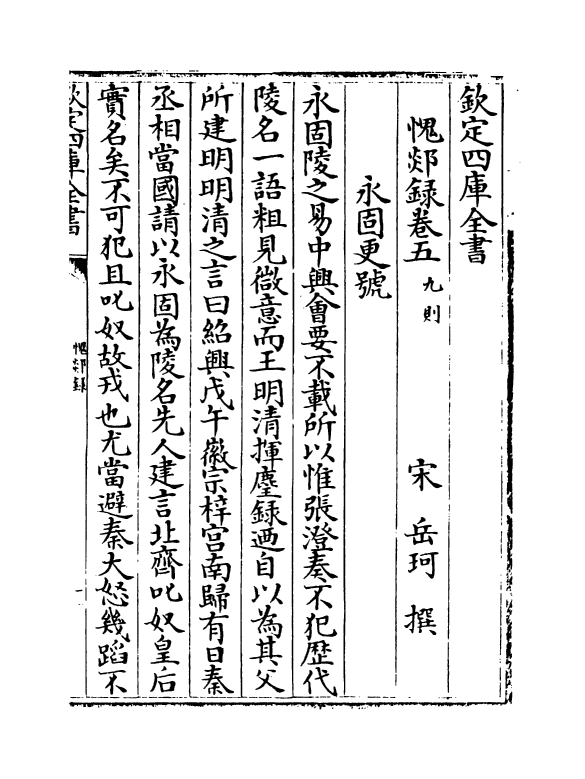 欽定四庫全書
愧郯錄卷五 九則
宋 岳珂 撰
永固更號
永固陵之易中興會要不載所以惟張澄奏不犯歴代
陵名一語粗見㣲意而王明清揮麈録廼自以為其父
所建明明清之言曰紹興戊午徽宗梓宫南歸有日秦
丞相當國請以永固為陵名先人建言北齊叱奴皇后
實名矣不可犯且叱奴故戎也尤當避秦大怒幾蹈不
欽定四庫全書
愧郯錄
一